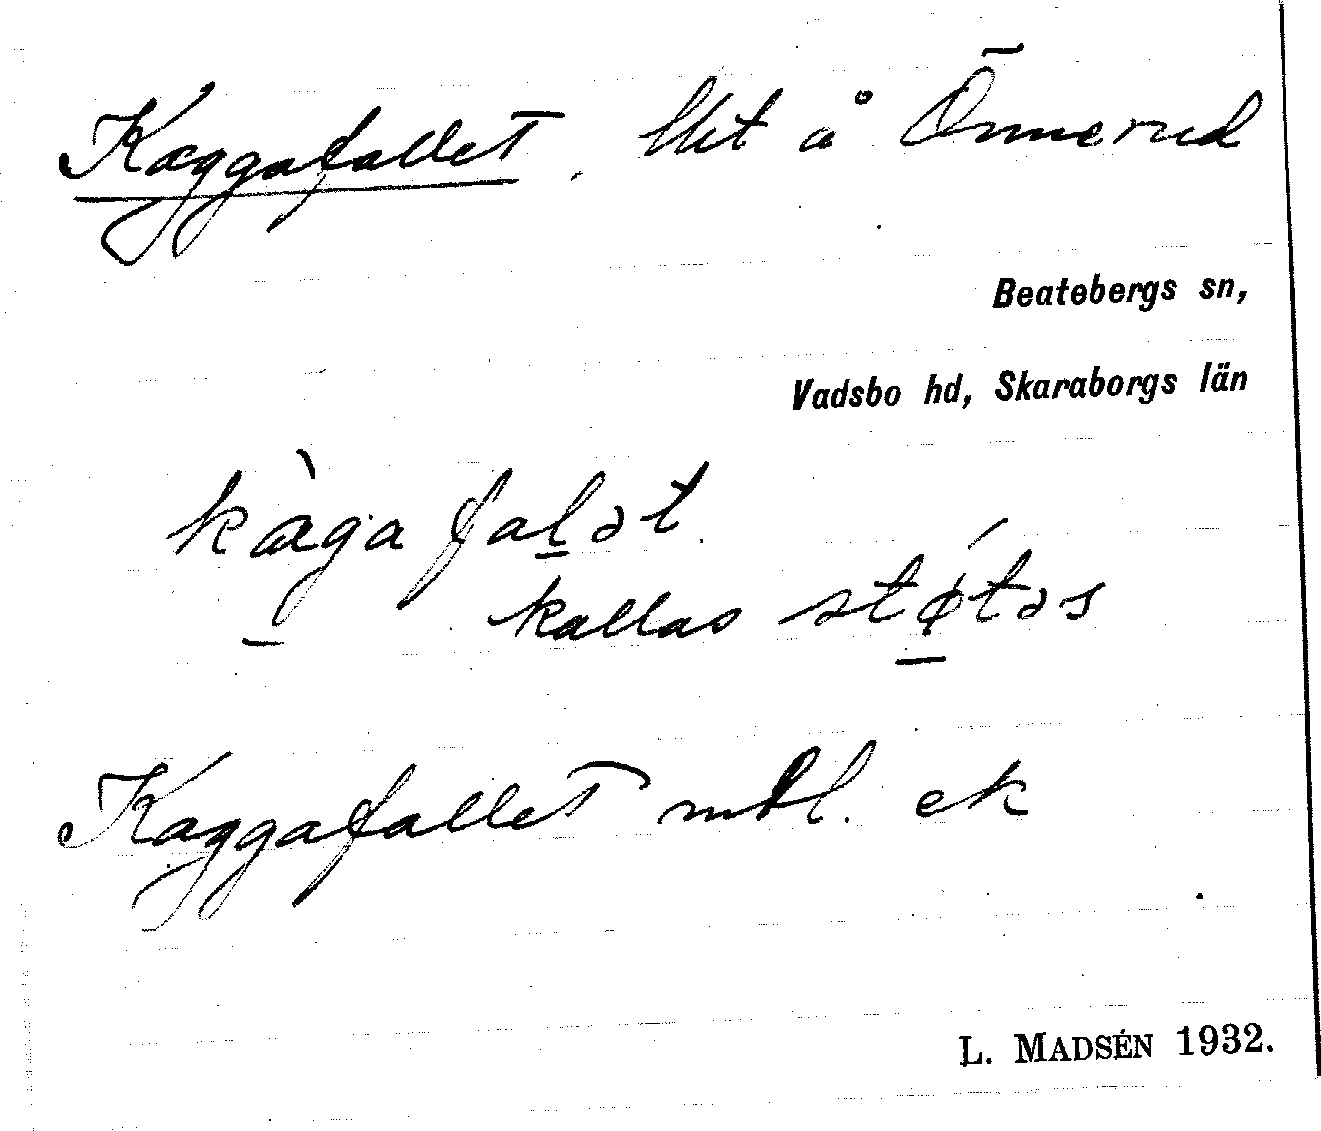 Kaggafallet. lht å Önnerud
Beatebergs sn,
Vadsbo hd, Skaraborgs län
kàgafalət
kallas støtəs
Kaggafallet mtl. ek
L. MADSÉN 1932.